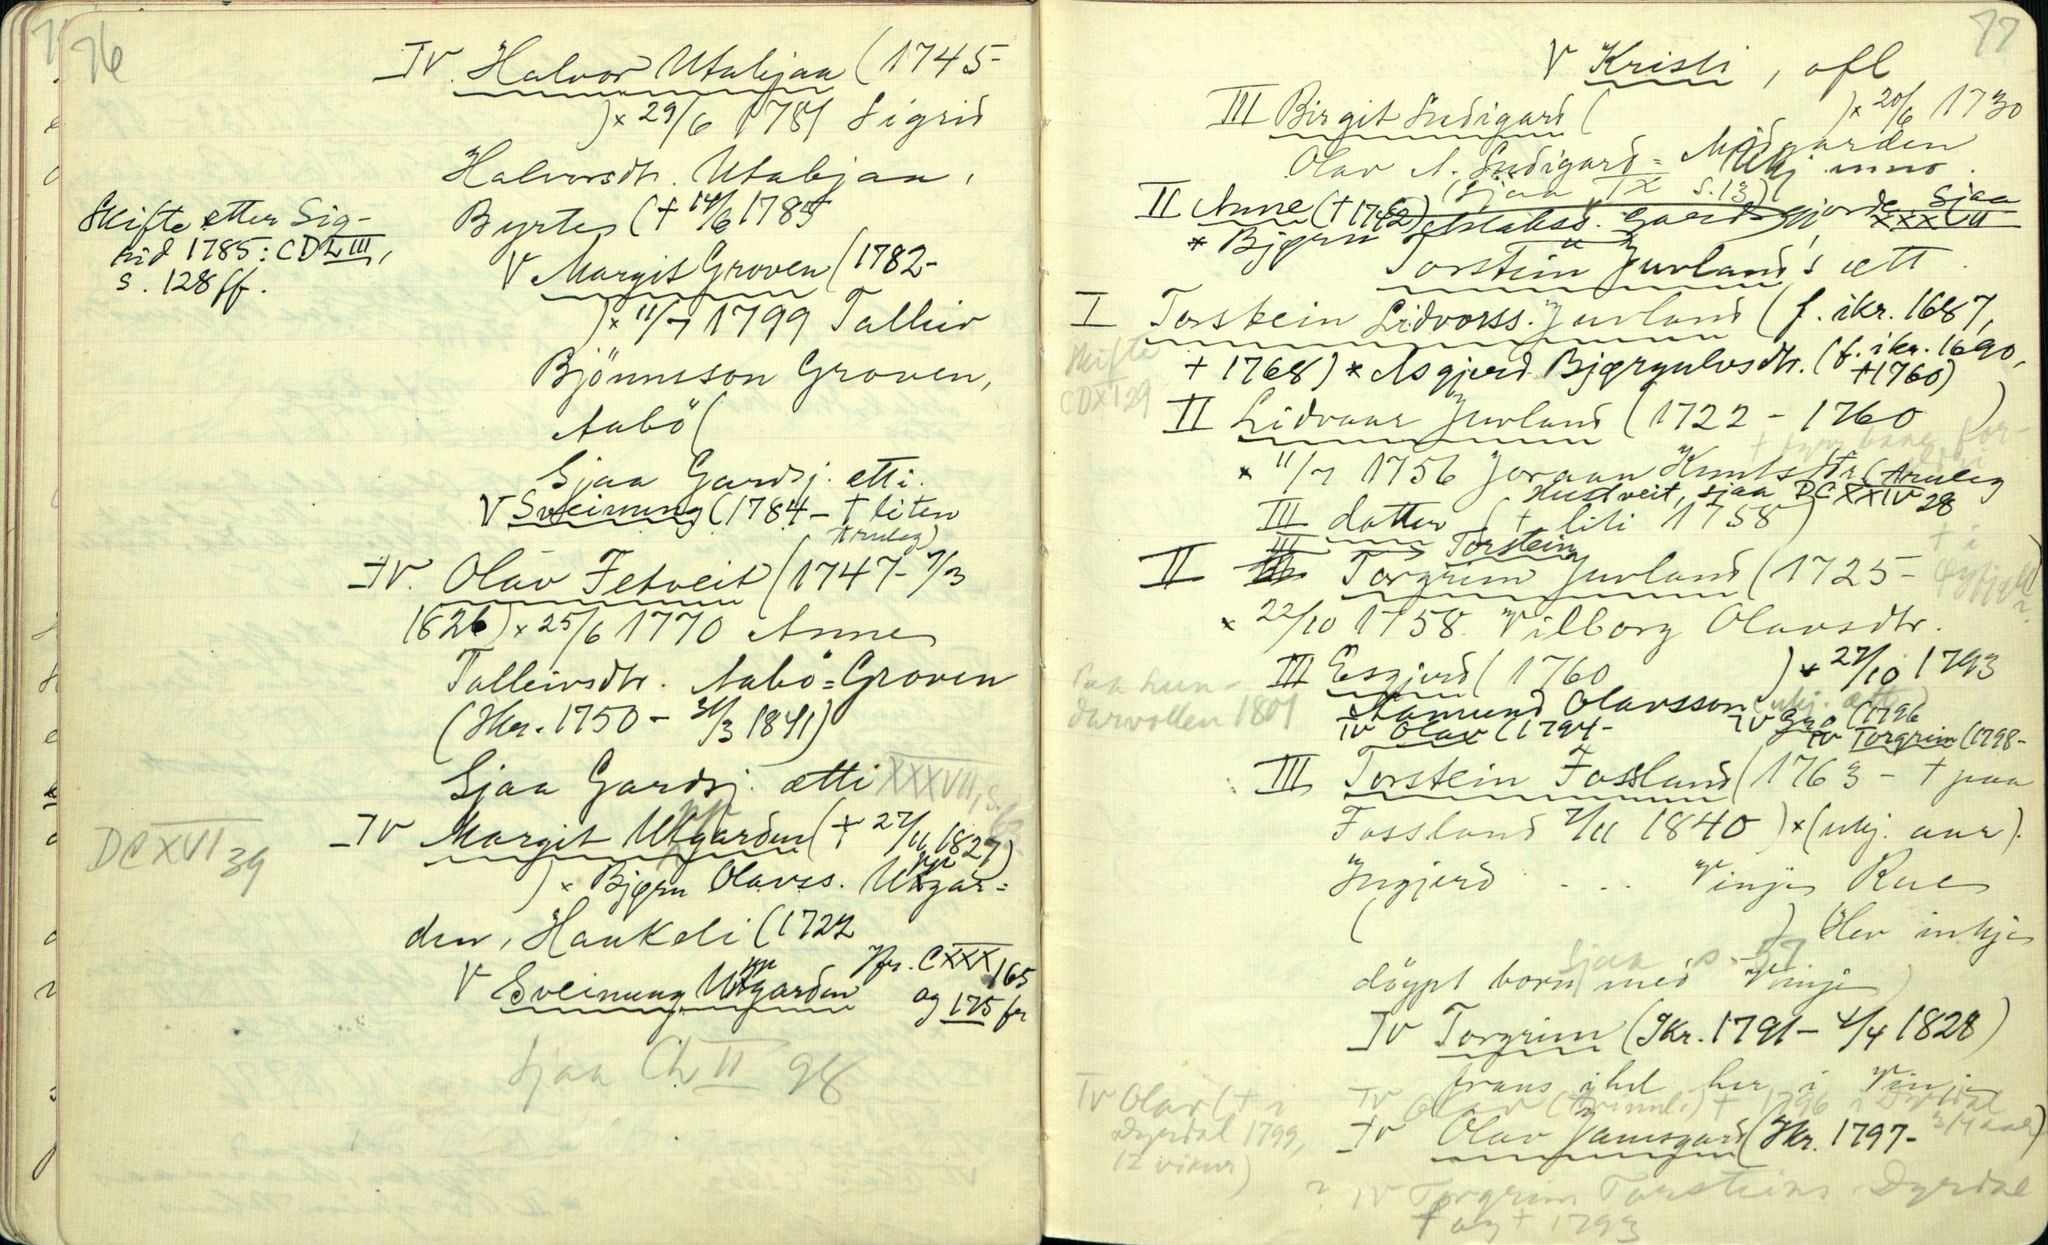 76
IV. Halvor Utabjaa (1745-
)× 29/6 1781 Sigrid
Halvorsdtr. Utabjaa,
Byrte (+ 14/6 1785
Skifte etter Sig-
rid 1785: CDLIII,
s. 128 ff.
V Margit Groven (1782-
)× 11/7 1799 Talleiv
Bjönnsson Groven,
Aabö (
Sjaa Gardsj. ætti.
V Sveinung (1784 - + liten
IV. Olav Fetveit (1747- 7/3
1826) × 25/6 1770 Anne
Talleivsdtr. Aabö=Groven
(Ikr. 1750 - 31/3 1841)
Sjaa Gardsj. ætti XXXVII, s.
IV Margit Utgarden (+ 27/11 1827)
DCXVI 39
) × Bjørn Olavss. Utgar=
den, Haukeli (1722
V Sveinung Utgarden
Jfr. CXXX 165
og 175 fr
Sjaa CLII 98
77
V Kristi, ofl
III Birgit Sudigard ( )× 20/6 1730
Olav A. Sudigard = Midgarden
(Sjaa IX s. 13)
II Anne (+ 1742) Sjaa XXXVII
* Bjørn
Torstein Juvland's ætt.
I Torstein Lidvorss. Juvland (f. ikr. 1687,
+ 1768) × Asgjerd Bjørgulvsdtr. (f. ikr. 1690,
+1760)
Skifte
CDXI 29
II Lidvaar Juvland (1722 - 1760 )
× 11/7 1756 Joraan Knutsdtr (
Hustveit, sjaa DCXXIV 28
III dotter (+ liti 1758)
Torstein
II Torgrim Juvland (1725 -
× 22/10 1758. Vilborg Olavsdtr.
III Esgjerd (1760 )× 27/10 1793
Aamund Olavsson (ukj. ætt)
IV Olav (1794- IV Gro (1796
IV Torgrim (1798-
1801
III Torstein Fossland (1763 - + paa
Fossland 7/11 1840) × (ukj. aar).
Ingjerd . . . Vinje Rue
( ) Hev inkje
Sjaa s. 57
döypt born med Vinje
IV Torgrim (Ikr. 1791 - 4/4 1828)
fraus ihel her i Vinje
IV Olav + 1796 i Dyrdal
IV Olav (+ i
Dyrdal 1799,
12 vikur)
IV Olav Jamsgard (Ikr. 1797- 3/4 aar)
? IV Torgrim Torsteins. Dyrdal
f og + 1793